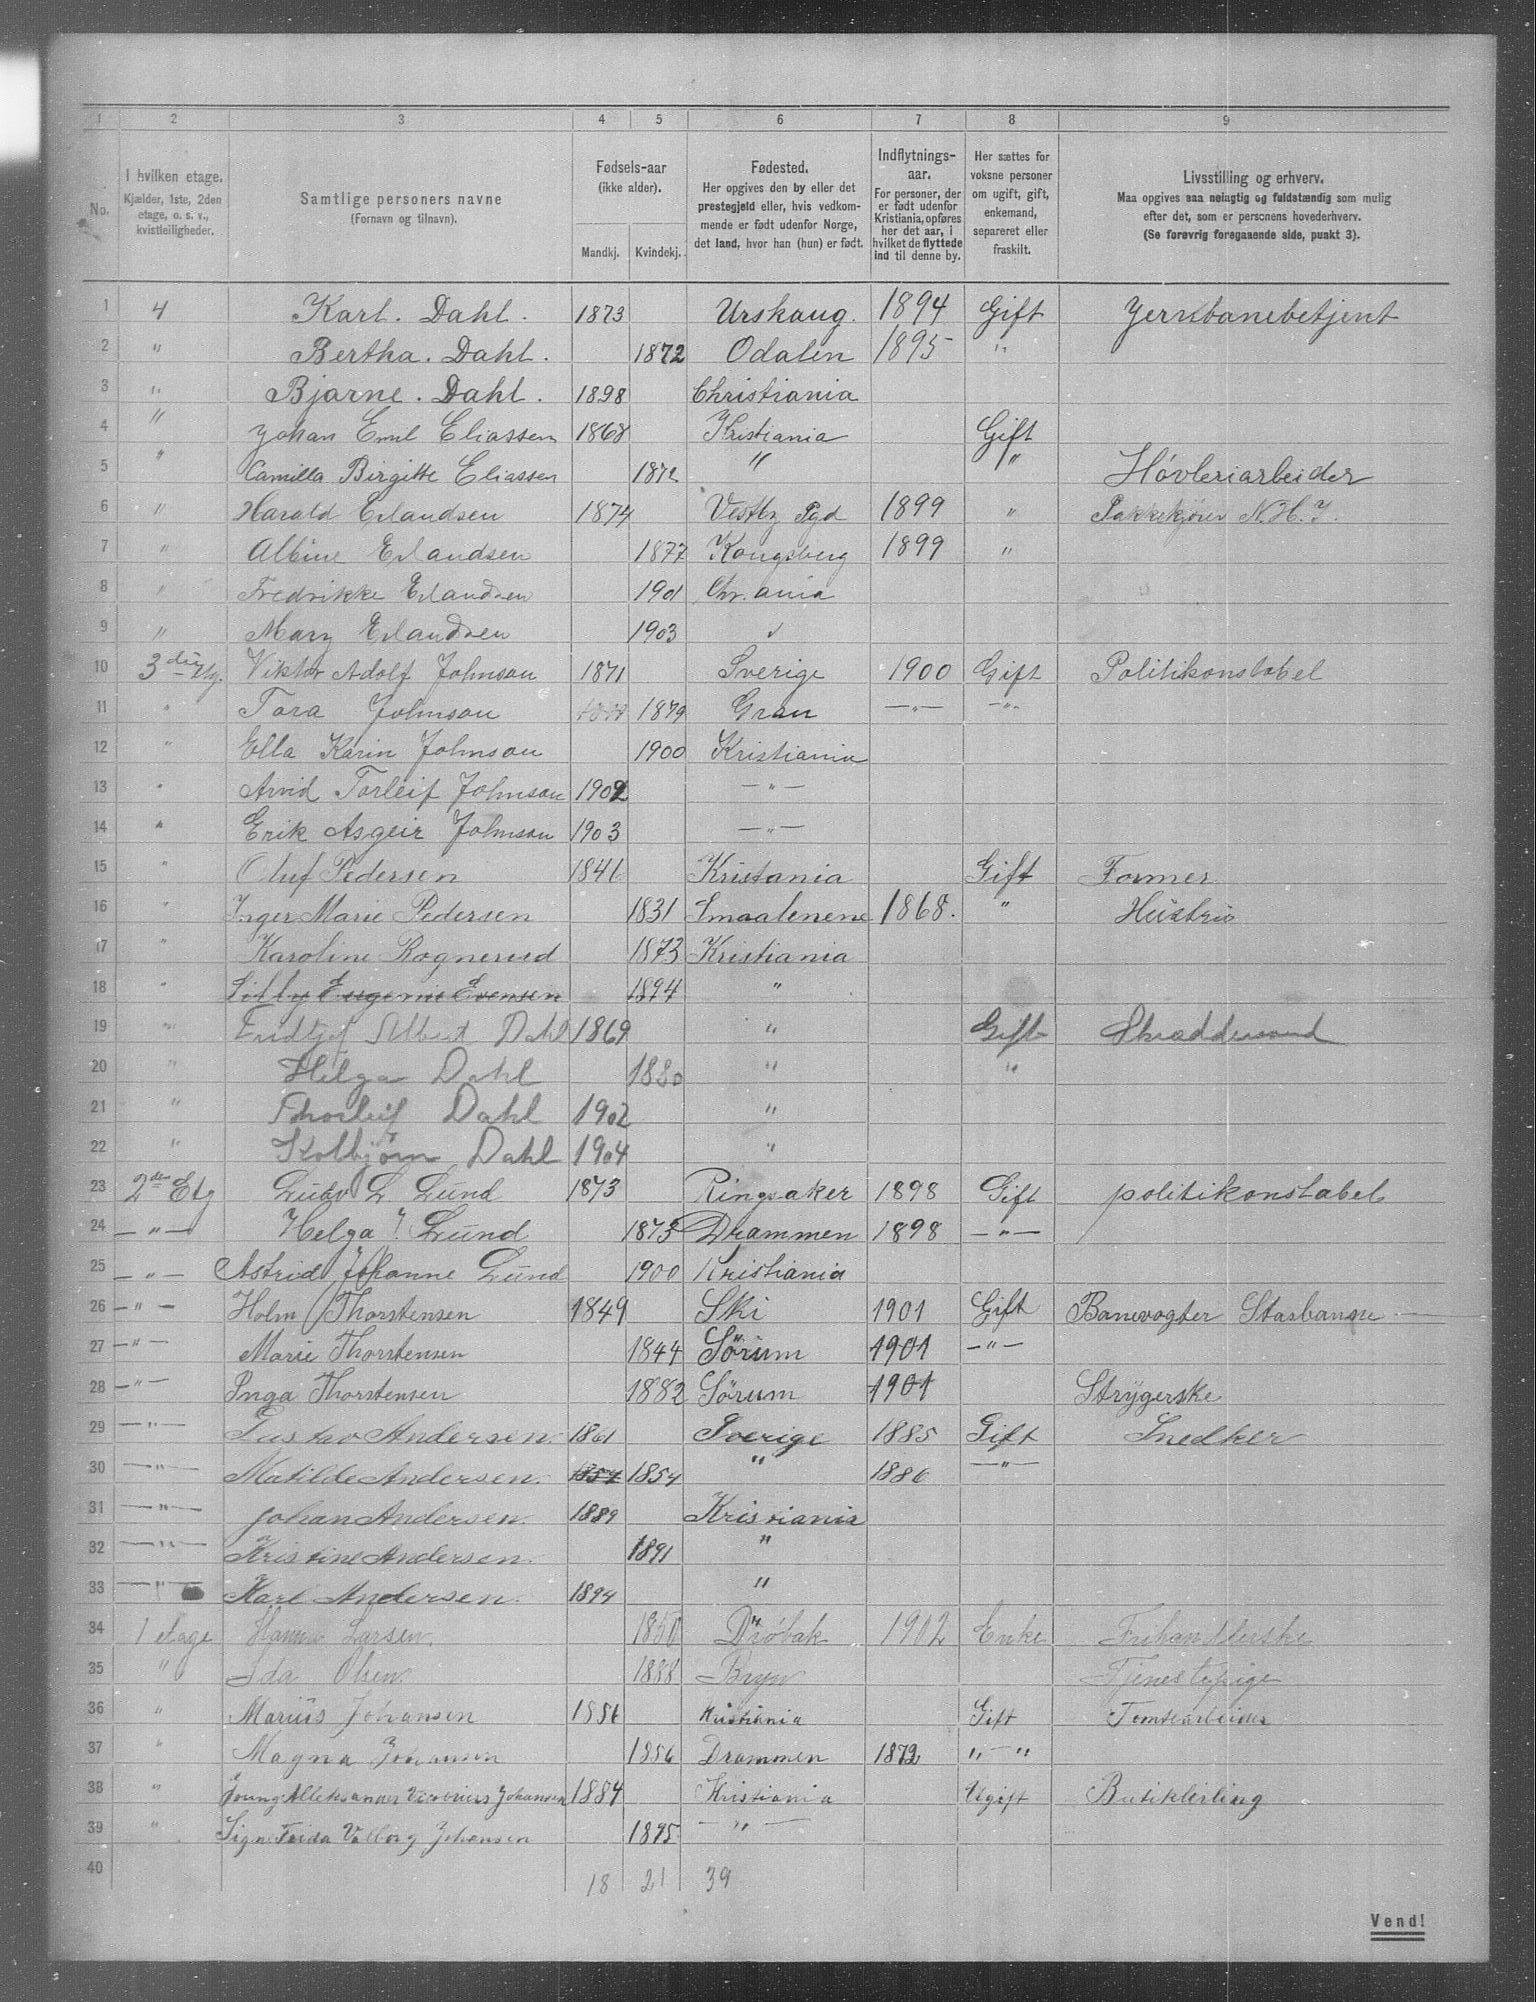 1 2 3 4 5 6 7 8 9
No.
I hvilken etage.
Kjælder, 1ste, 2den
etage, o. s. v.,
kvistleiligheder.
Samtlige personers navne
(Fornavn og tilnavn).
Fødsels-aar
(ikke alder).
Mandkj. Kvindekj.
Fødested.
Her opgives den by eller det
prestegjeld eller, hvis vedkom-
mende er født udenfor Norge,
det land, hvor han (hun) er født.
Indflytnings-
aar.
For personer, der
er født udenfor
Kristiania, opføres
her det aar, i
hvilket de flyttede
ind til denne by.
Her sættes for
voksne personer
om ugift, gift,
enkemand,
separeret eller
fraskilt.
Livsstilling og erhverv.
Maa opgives saa nøiagtig og fuldstændig som mulig
efter det, som er personens hovederhverv.
(Se forøvrig foregaaende side, punkt 3).
1 4 Karl. Dahl. 1873 Urskaug. 1894 Gift Jernbanebetjent
2 " Bertha. Dahl. 1872 Odalen 1895 "
3 " Bjarne. Dahl. 1898 Christiania
4 " Johan Emil Eliassen 1868 Kristiania Gift
5 " Camilla Birgitte Eliassen 1872 " " Hövleriarbeider
6 " Harald Erlandsen 1874 Vestby Pgd 1899 " Pakkekjører N.H.J.
7 " Albine Erlandsen 1877 Kongsberg 1899 "
8 " Fredrikke Erlandsen 1901 Chr.ania
9 " Mary Erlandsen 1903 "
10 3die etg. Viktor Adolf Johnson 1871 Sverige 1900 Gift Politikonstabel
11 " Tora Johnson 1879 Gran —"— —"—
12 " Ella Karin Johnson 1900 Kristiania
13 " Arvid Torleif Johnson 1902 —"—
14 " Erik Asgeir Johnson 1903 —"—
15 " Oluf Pedersen 1841 Kristania Gift Former
16 " Inger Marie Pedersen 1831 Smaalenene 1868. " Hüstru
17 " Karoline Rognerud 1873 Kristiania
18 " Eugenie Evensen 1894 "
19 " Fridtjof Albert Dahl 1869 " Gift Skræddersvend
20 " Helga Dahl 1880 " "
21 " Thorleif Dahl 1902 "
22 " Kolbjørn Dahl 1904 "
23 2den Etg Ludv L Lund 1873 Ringsaker 1898 Gift politikonstabel
24 —"— Helga J. Lund 1873 Drammen 1898 —"—
25 —"— Astrid Johanne Lund 1900 Kristiania
26 —"— Holm Thorstensen 1849 Ski 1901 Gift Banevogter Stasbanene
27 —"— Marie Thorstensen 1844 Sörum 1901 —"—
28 —"— Inga Thorstensen 1882 Sörum 1901 Strÿgerske
29 —"— Gustav Andersen. 1861 Sverige 1885 Gift Snedker
30 —"— Matilde Andersen. 1854 1854 " 1886 —"—
31 —"— Johan Andersen. 1889 Kristiania
32 —"— Kristine Andersen. 1891 "
33 —"— Karl Andersen. 1894 "
34 1 etage Hanna Larsen. 1850 Drøbak 1902 Enke Frihandlerske
35 " Ida Olsen. 1888 Bryn Tjenestepige
36 " Mariüs Johansen 1856 Kristiania Gift Tomtearbeider
37 " Magna Johansen 1856 Drammen 1872 "—"
38 " Alleksander Johansen 1884 Kristiania Ugift Bütiklerling
39 " Frida Valborg Johansen 1895 —"—
40 18 21 39
Vend!